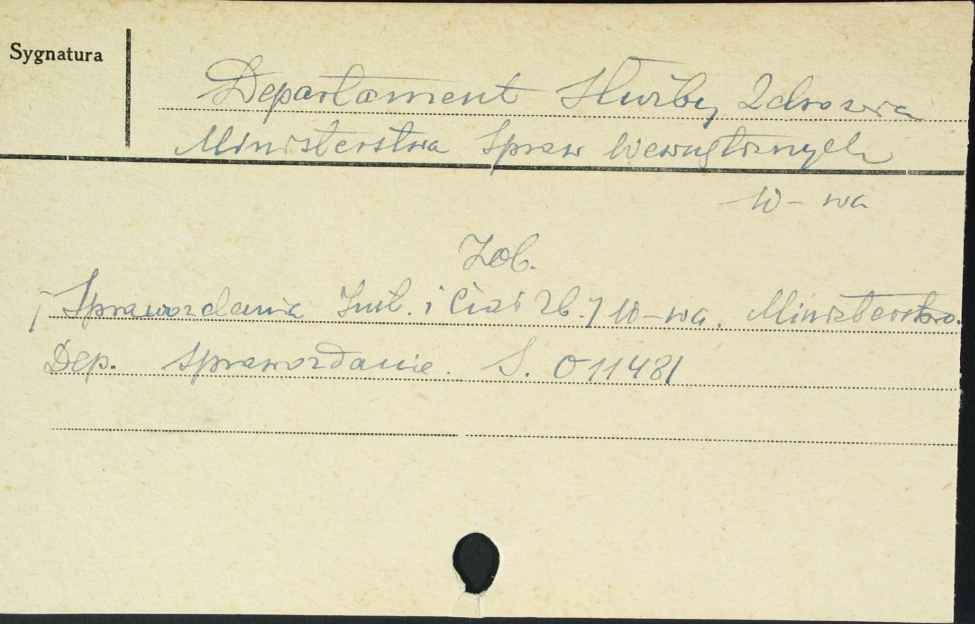 Sygnatura
Departament Służby Zdrowia
Ministerstwa Spraw Wewnętrznych
W-wa
Zob.
/Sprawozdania Inst. i Ciał Zb./ W-wa. Ministerstwo.
Dep. Sprawozdanie. S. 011481